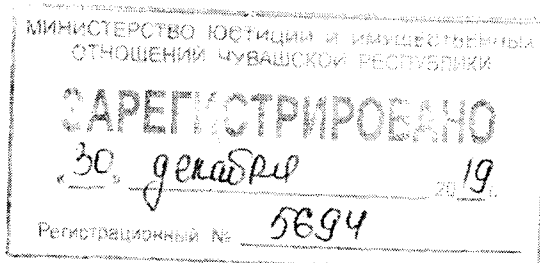 МИНИСТЕРСТВО ЮСТИЦИИ И ИМУЩЕСТВЕННЫХ
ОТНОШЕНИЙ ЧУВАШСКОЙ РЕСПУБЛИКИ
ЗАРЕГИСТРИРОВАНО
"30" декабря 2019 г.
Регистрационный № 5694